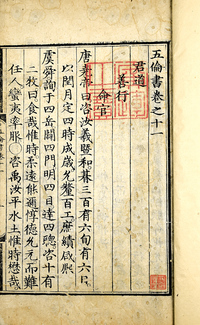 五倫書卷之十一
君道
善行
命官
唐堯帝曰咨汝羲暨和朞三百有六旬有六日
以閏月定四時成歲允釐百工庶績咸熙
虞舜詢于四岳闢四門明四目達四聰咨十有
二牧曰食哉惟時柔遠能邇惇德允元而難
任人蠻夷率服○咨禹汝平水土惟時懋哉